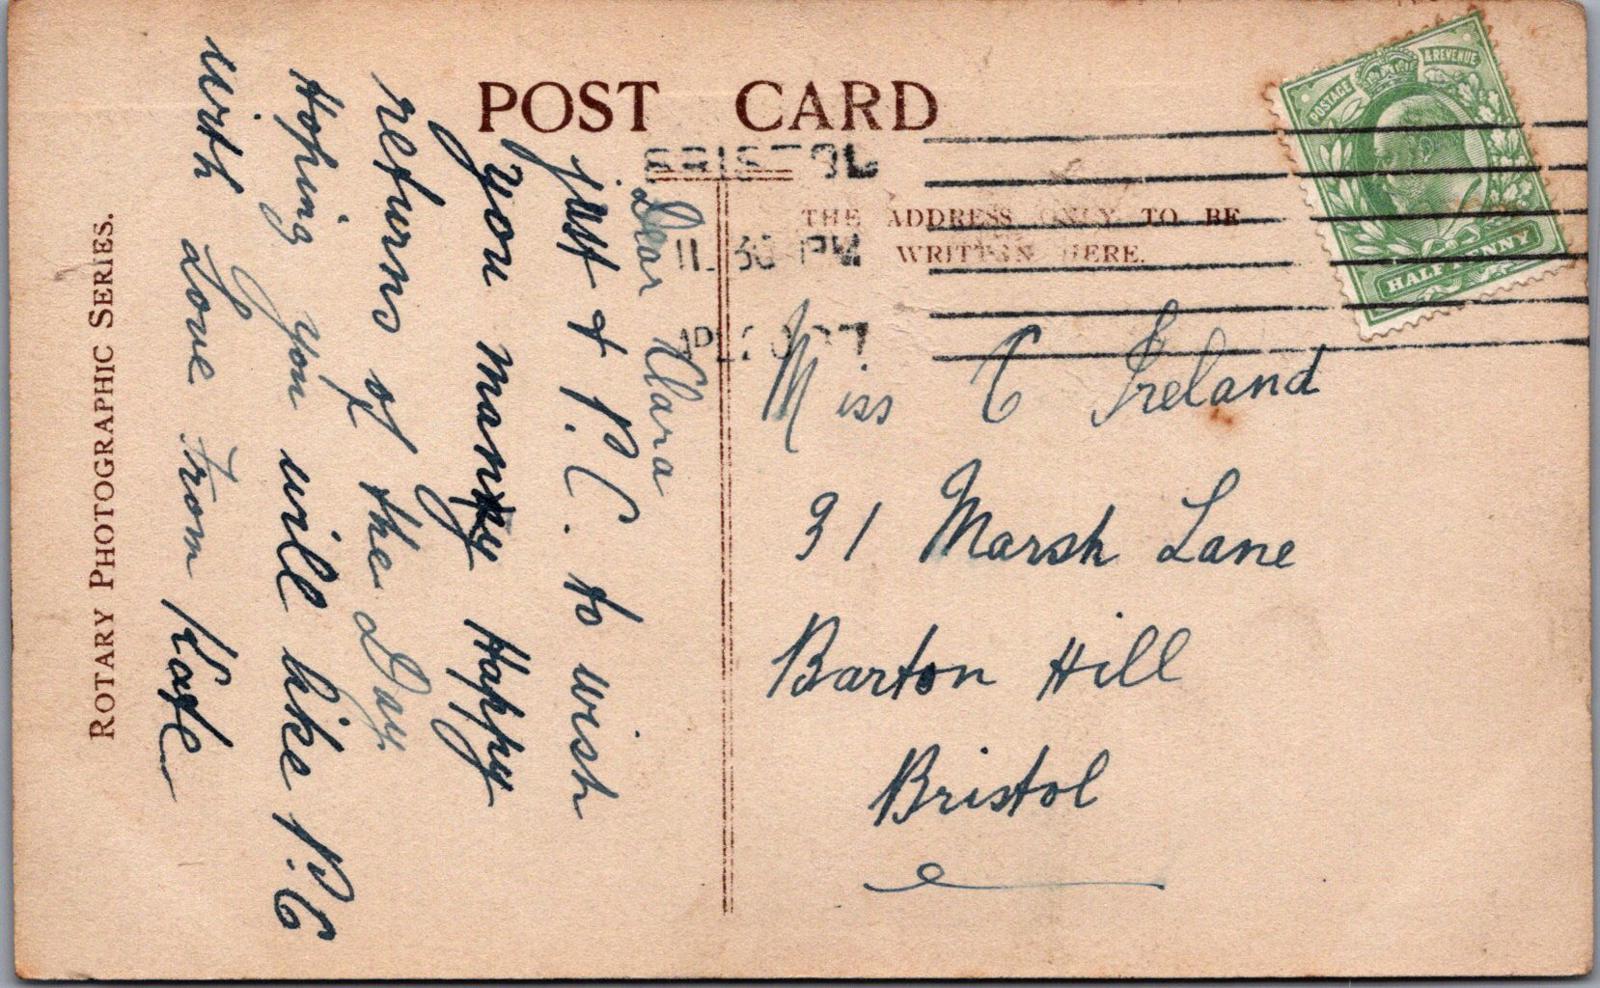 POST CARD
BRISTOL
11.30 PM
THE ADDRESS ONLY TO BE
WRITTEN HERE.
POSTAGE & REVENUE
HALF PENNY
ROTARY PHOTOGRAPHIC SERIES.
Dear Clara
just a P.C. to wish
you many Happy
returns of the Day
Hoping you will like P.C
with Love From Kate
Miss C Ireland
31 Marsh Lane
Barton Hill
Bristol